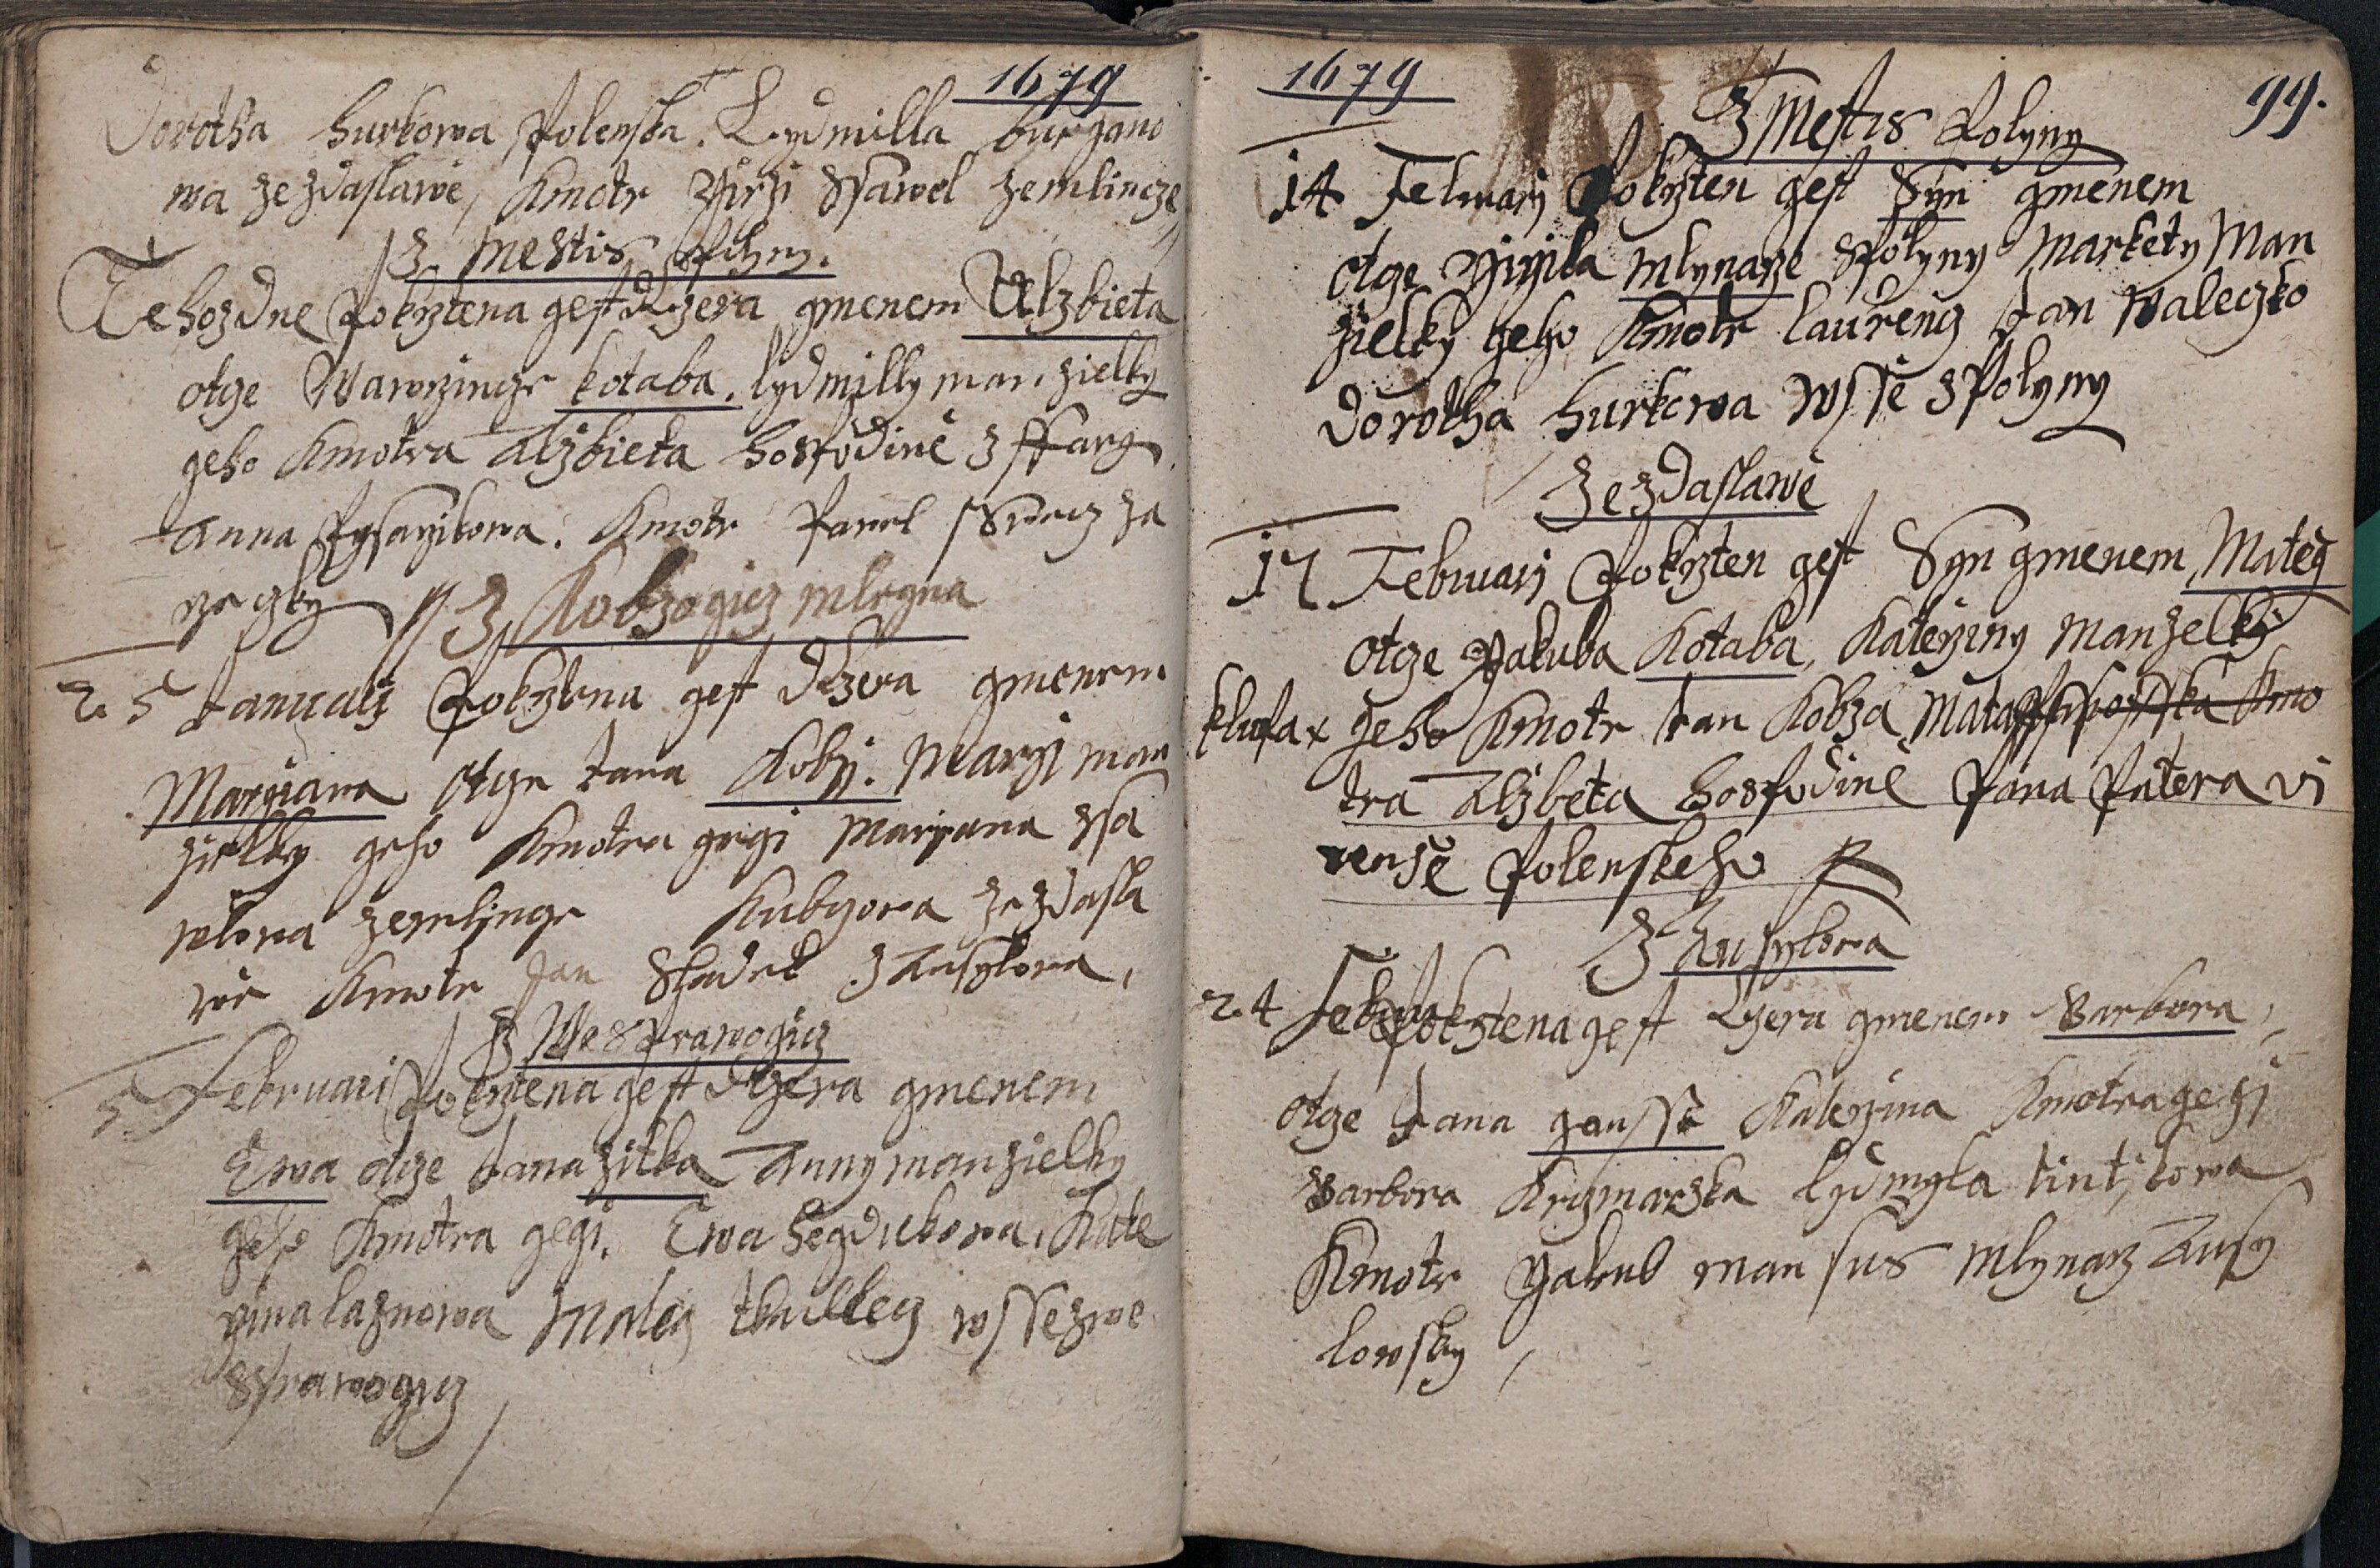 1679
Dorotha hurkowa Polenska. Lydmilla burgano
wa ze zdaslawe, Kmotr Girzi Pawel zemlincze
Z mestis
Tehozdne Pokrztena gest dczera gmenem Alzbieta
otge Wawrzincze kotaba. lydmilly man. zielky
geho Kmotra Alzbieta hospodine z ffary
Anna Pysarzikowa. Kmotr Pawel
Z Kobzogicz mlegna
2.5 Januarij Pokrztena gest dczera gmenem
Maryana otge Jana Kobzi. Maryi man
zielky geho Kmotra gegi Maryana
wlowa zemljncze Kubgowa ze zdasla
we Kmotr Jan Sladek z Ausylowa,
Z Wesprawogicz
5 Februari Pokrztena gest dczera gmenem
Ewa otcze Jana zitka Anny manzielky
geho Kmotra gegi. Ewa hegdukowa, Kate
rzina laznowa Mateg tkadlecz wsse zwe
sprawogicz
1679
99.
Z Mestis Polyny
14 Februarij Pokrzten gest Syn gmenem
otge Girzika mlynarze Spolyny Markety Man
zielky geho Kmotr laurencz Jan Waleczko
Dorotha hurkowa Wsse z Polyny
Ze zdaslawe
17 Februarij Pokrzten gest Syn gmenem Mateg
otcze Yakuba Kotaba, Katerziny Manzelky
geho Kmotr Jan Kobza Mata Kmo
tra Alzbeta hospodine Pana Patera vi
rense Polenskeho
Z Ausylowa
2.4 Febru Pokrztena gest dczera gmenem Barbora,
otge Jana gansse Katerzina Kmotra gegi
Barbora Krczmarzka lydmyla tintikowa
Kmotr Yakub man sus mlynarz Ausy
lowsky